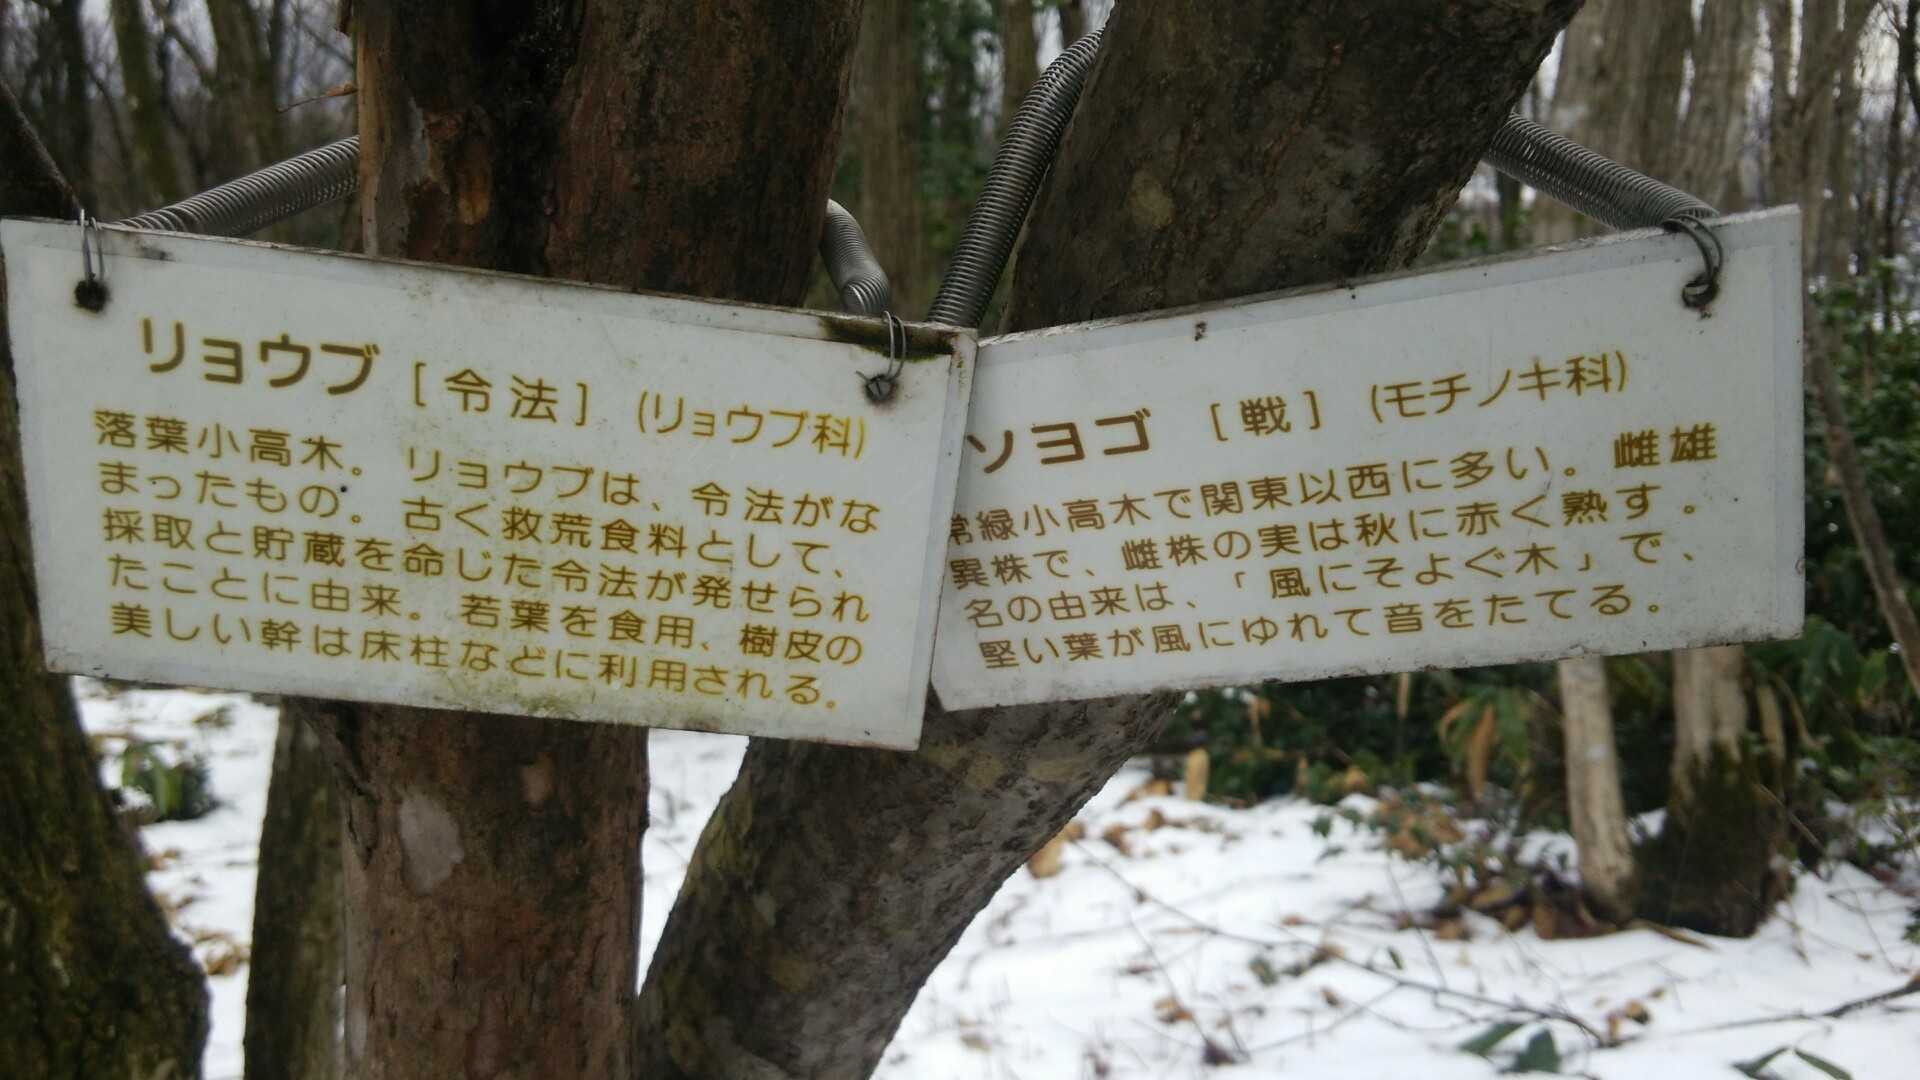 リョウブ [令法] (リョウブ科)
落葉小高木。リョウブは、令法がな
まったもの。古く救荒食料として、
採取と貯蔵を命じた令法が発せられ
たことに由来。若葉を食用、樹皮の
美しい幹は床柱などに利用される。
ソヨゴ [戦] (モチノキ科)
常緑小高木で関東以西に多い。雌雄
異株で、雌株の実は秋に赤く熟す。
名の由来は、「風にそよぐ木」で、
堅い葉が風にゆれて音をたてる。